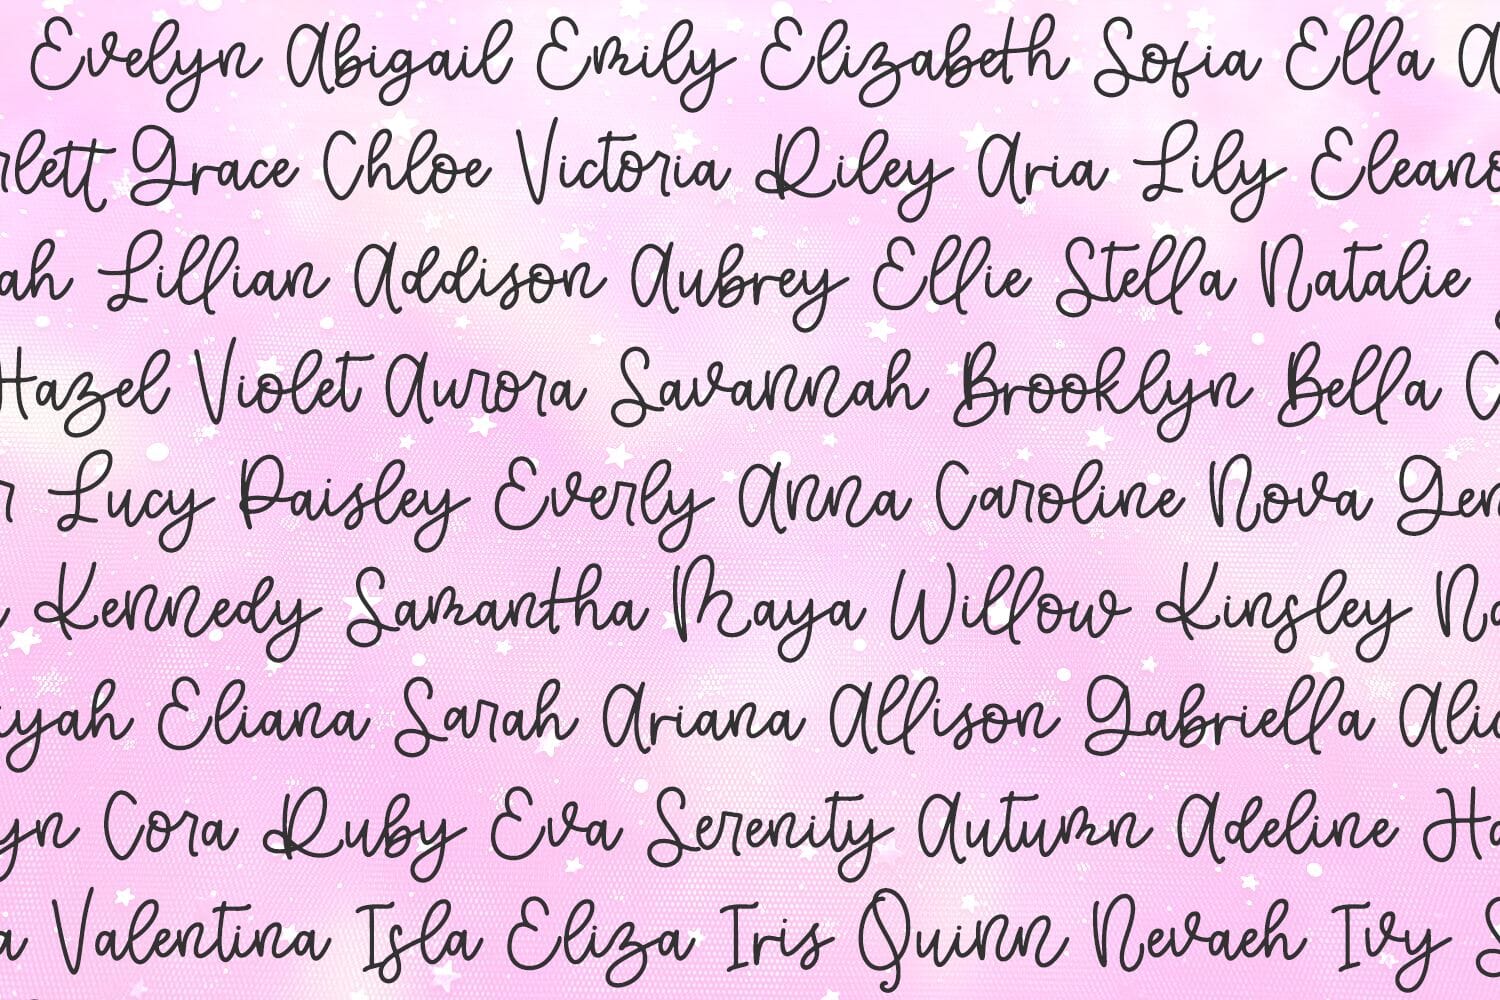 Evelyn Abigail Emily Elizabeth Sofia Ella A
rlett Grace Chloe Victoria Riley Aria Lily Eleano
ah Lillian Addison Aubrey Ellie Stella Natalie
Hazel Violet Aurora Savannah Brooklyn Bella C
r Lucy Paisley Everly Anna Caroline Nova Gen
Kennedy Samantha Maya Willow Kinsley Na
iyah Eliana Sarah Ariana Allison Gabriella Alic
yn Cora Ruby Eva Serenity Autumn Adeline Ha
a Valentina Isla Eliza Iris Quinn Nevaeh Ivy S